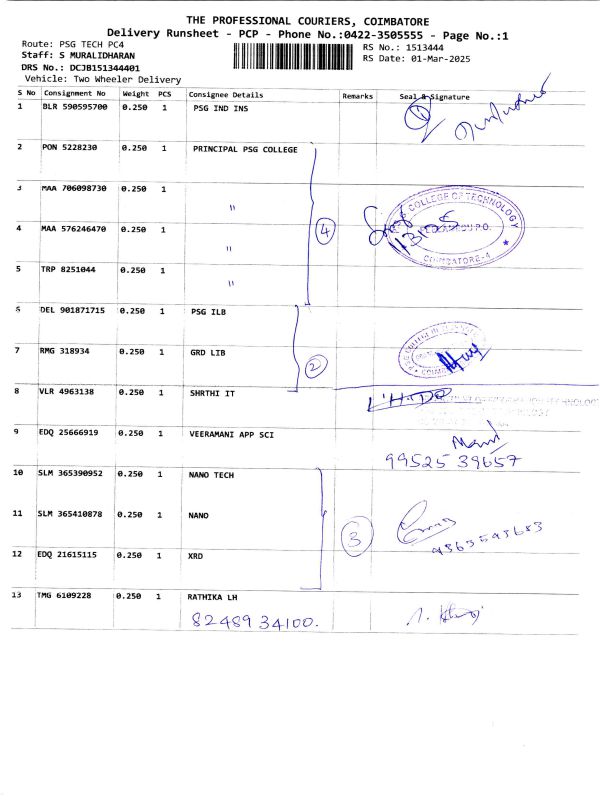 THE PROFESSIONAL COURIERS, COIMBATORE
Delivery Runsheet - PCP - Phone No.:0422-3505555 - Page No.:1
Route: PSG TECH PC4 RS No.: 1513444
Staff: S MURALIDHARAN RS Date: 01-Mar-2025
DRS No.: DCJB151344401
Vehicle: Two Wheeler Delivery
S No Consignment No Weight PCS Consignee Details Remarks Seal & Signature
1 BLR 590595700 0.250 1 PSG IND INS ①
2 PON 5228230 0.250 1 PRINCIPAL PSG COLLEGE
3 MAA 706098730 0.250 1 "
COLLEGE OF TECHNOLOGY
4 MAA 576246470 0.250 1 " ④
COIMBATORE-4
5 TRP 8251044 0.250 1 "
6 DEL 901871715 0.250 1 PSG ILB
7 RMG 318934 0.250 1 GRD LIB ②
8 VLR 4963138 0.250 1 SHRTHI IT
9 EDQ 25666919 0.250 1 VEERAMANI APP SCI
99525 39657
10 SLM 365390952 0.250 1 NANO TECH
11 SLM 365410878 0.250 1 NANO ③
12 EDQ 21615115 0.250 1 XRD
13 TMG 6109228 0.250 1 RATHIKA LH
82489 34100.